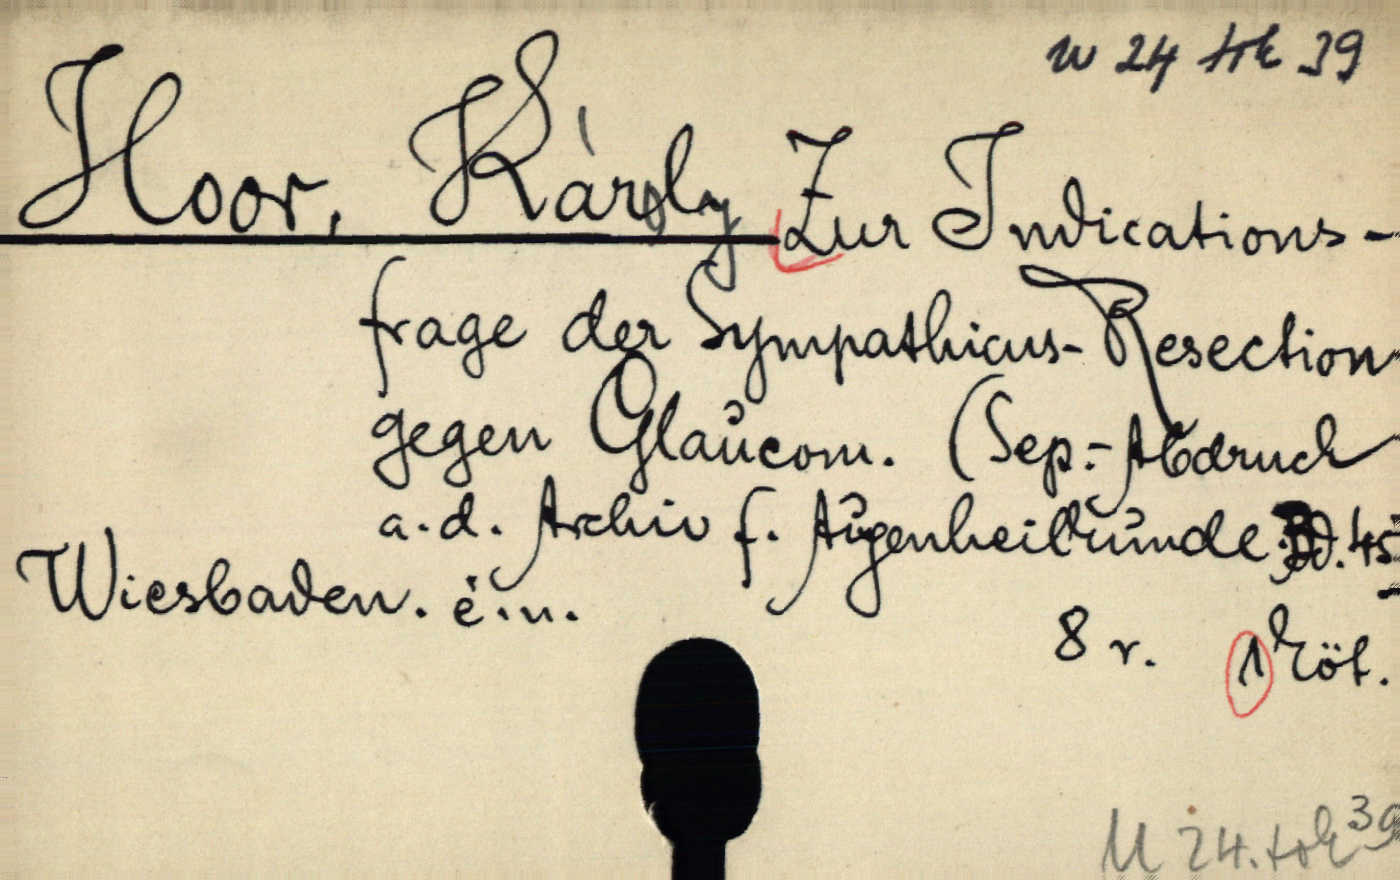 W 24 trk 39
Hoor, Károly Zur Indications-
frage der Sympathicus-Resection
gegen Glaucom. (Sep.-Abdruck
a. d. Archiv f. Augenheilkunde. Bd. 45
Wiesbaden. é. n.
8 r. 1 köt.
M 24. trk 39